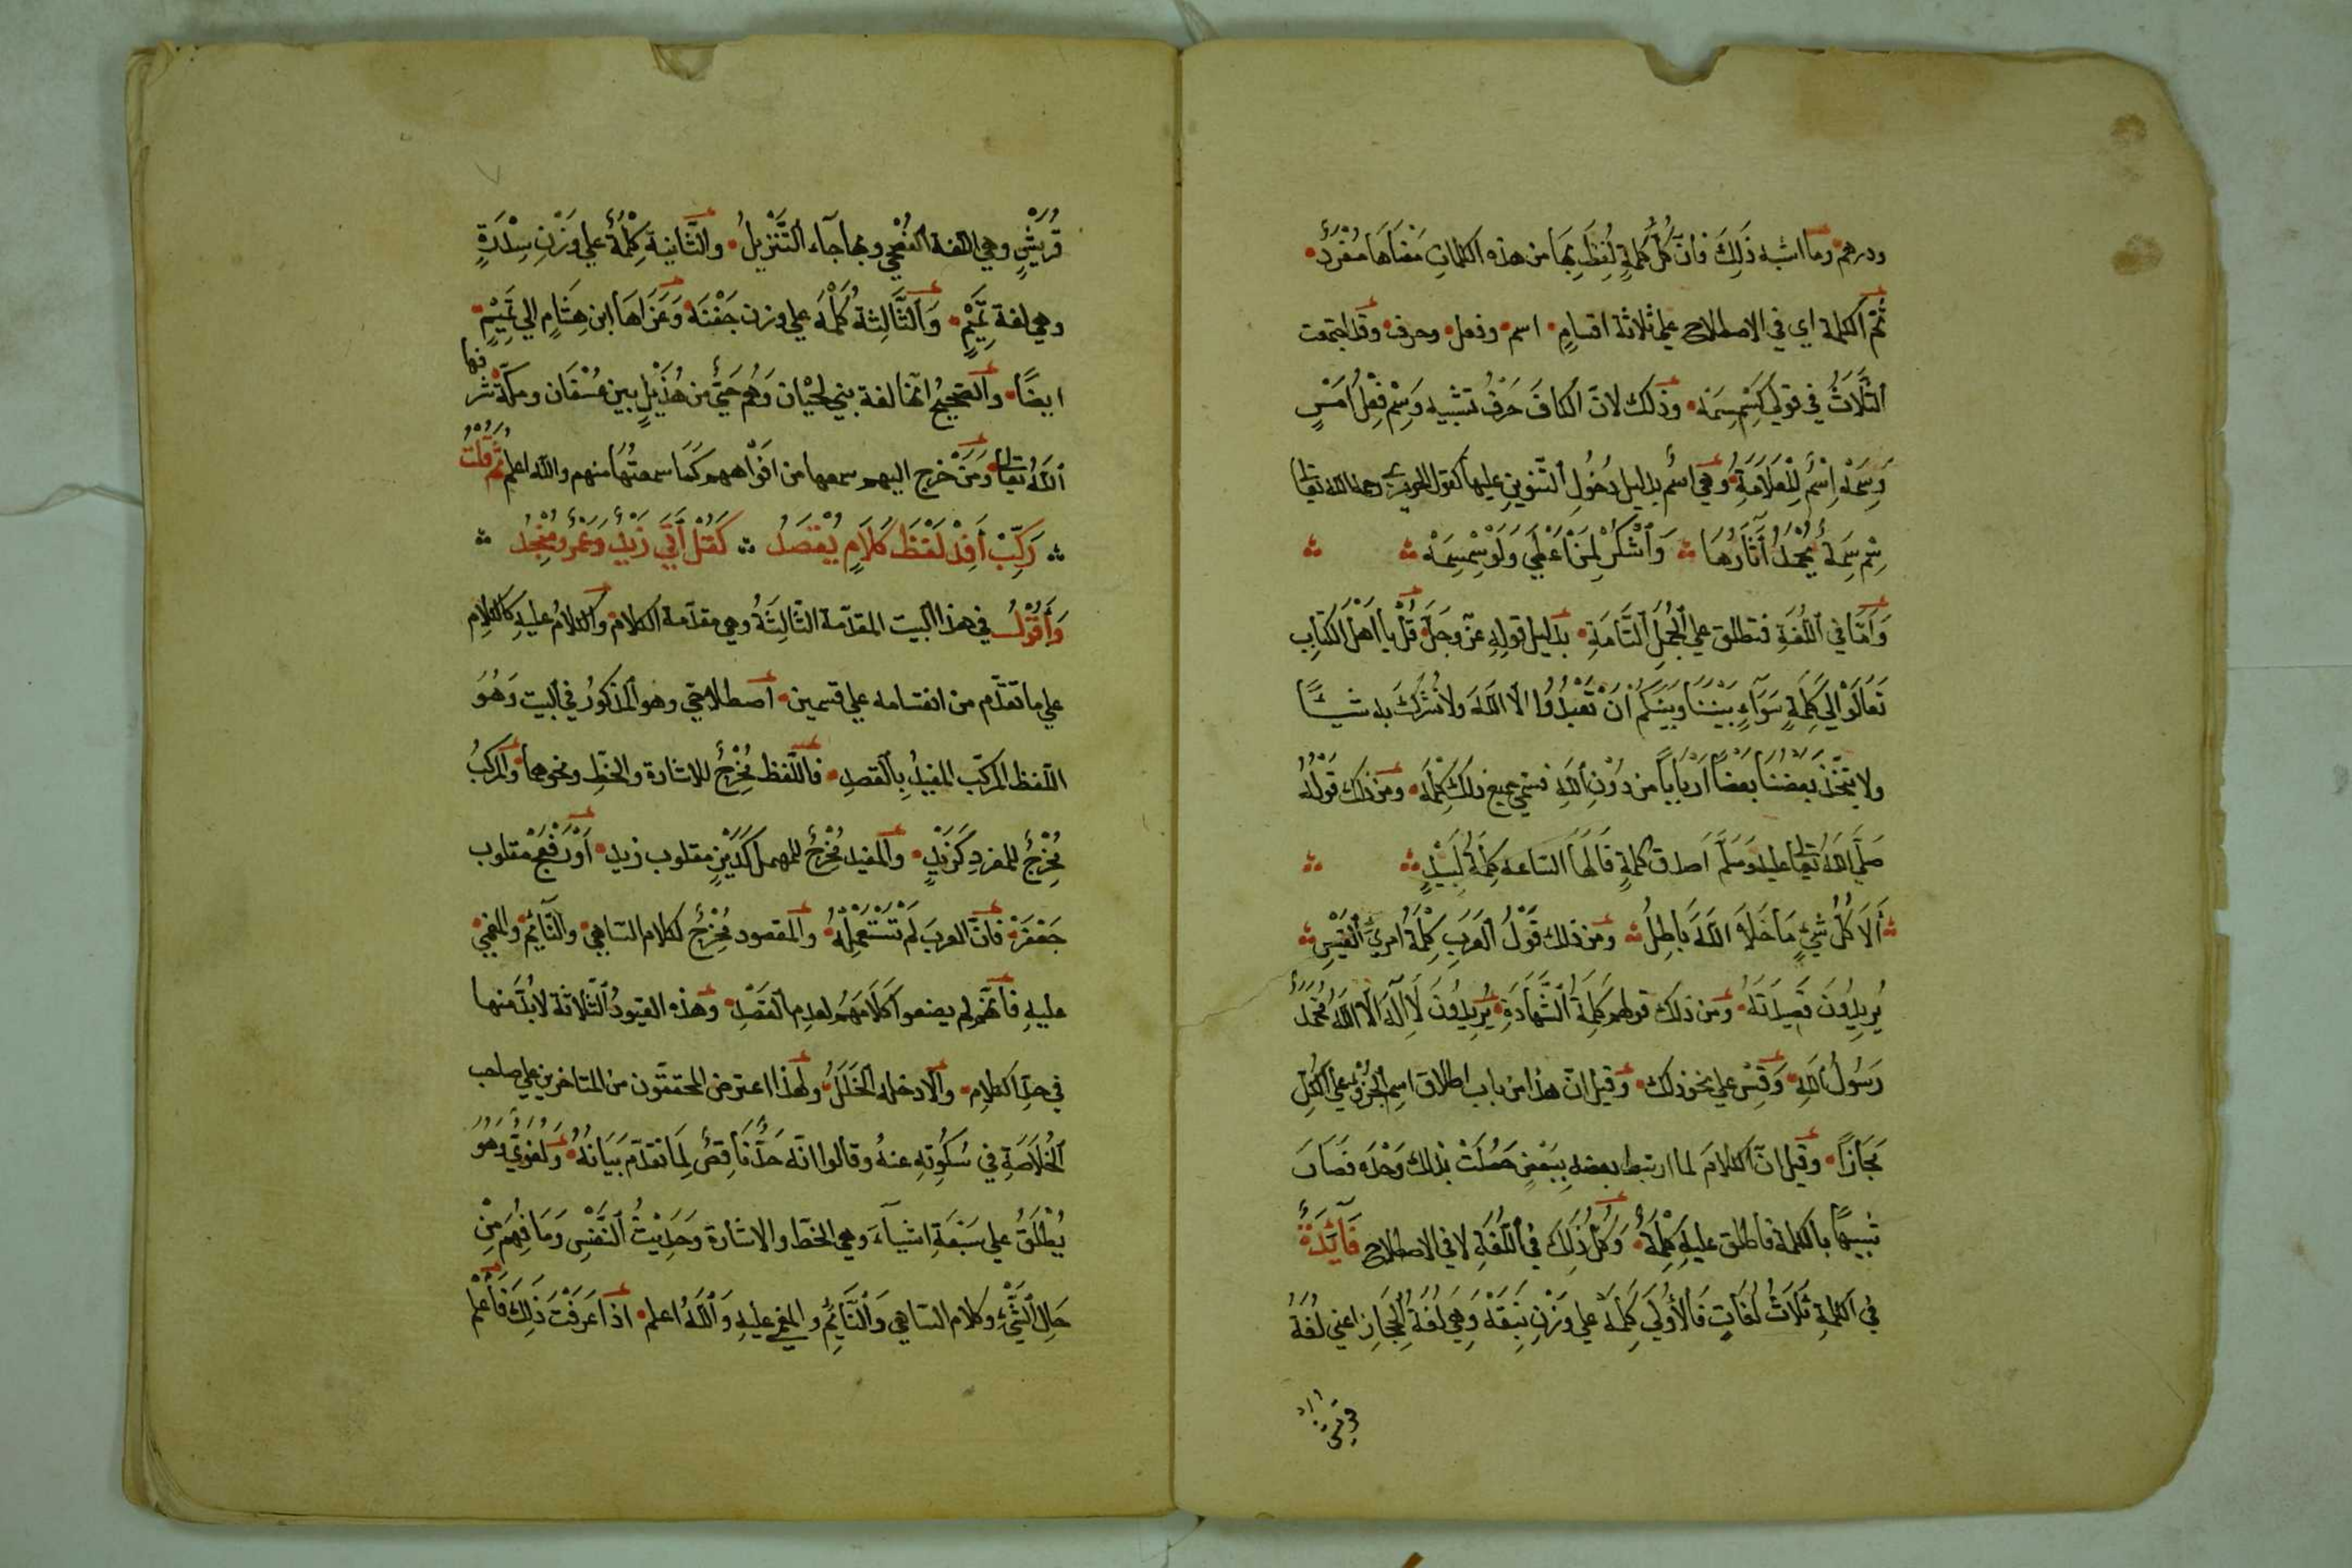 ودرهم وما اشبه ذَلِكَ فانّ كُلَّ كلمةٍ لُفِظَ بِهَا من هذه الكلماتِ مَعْنَاهَا مُفْرَدٌ
ثُمَّ الكلمة اي في الاصطلاح علي ثلاثة اقسامٍ اسم وفعل وحرف وقد اجتمعت
الثَّلَاثُ في قولي كَسِمْ سِمَه وذلك لانّ الكافَ حَرْفُ تشبيه وَسِمْ فِعْلُ اَمْرٍ
وَسِمَهْ اِسْمٌ لِلْعَلَامَةِ وهي اسمٌ بدليل دُخُولِ التّنوينِ عليها كقول الحريري رحمه الله تعالى
سِمْ سِمَةً يُحْمَدُ آثَارُهَا وَاشْكُرْ لِمَنْ اَعْطَي وَلَوْ سِمْسِمَهْ
وَاَمَّا في اللُّغَةِ فتطلق علي الجُمَلِ التَّامَةِ بدليل قولِهِ عزّ وجلّ قُلْ يا اَهْلَ الكِتَابِ
تَعَالَوْا اِلَي كَلِمَةٍ سَوَآءٍ بَيْنَنَا وَبَيْنَكُمْ اَنْ لَا نَعْبُدُ الّا اللهَ ولا نُشْرِكَ به شيئًا
ولا يتّخذَ بَعْضُنَا بَعْضًا اَرْبَابًا من دُوْنِ اللهِ فسمّي جميع ذلك كَلِمَه ومن ذلك قَوْلُهُ
صَلَّي اللهُ تعالى عليه وسَلَّمَ اَصدق كلمةٍ قَالَهَا السّاعه كَلِمَةُ لَبِيْدٍ
اَلَا كُلُّ شَيْءٍ مَا خَلَا اللهَ بَاطِلُ ومن ذلك قَوْلُ العَرَبِ كَلِمَةُ امرِئِ القَيْسِ
يُرِيدُونَ قَصِيدَتَهُ ومن ذلك قولهم كَلِمَةُ الشَّهَادَةِ يُرِيدُونَ لَا اِلَهَ الّا اللهُ مُحَمَّدٌ
رَسُولُ اللهِ وَقِسْ علي نحو ذلك وقيل انّ هذا من باب اطلاق اسم الجُزْءِ علي الكُلِّ
مَجَازًا وقيل انّ الكلامَ لما ارتبط بعضه بِبَعْضٍ حَصَلَتْ بذلك وَحْدَه فصَارَ
شَبِيْهًا بالكلمة فاُطلق عليه كَلِمَةٌ وَكُلُّ ذَلِكَ في اللُّغَةِ لا في الاصطلاح فَآئِدَةٌ
في الكلمةِ ثَلَاثُ لُغَاتٍ فَالاُوْلَي كَلِمَة علي وَزْنِ نَبِقَةْ وَهِيَ لُغَةُ الحِجَازِ اعني لُغَةُ
قريش
قُرَيْشٍ وهي اللغة الفُصْحي وبها جآء التَّنْزِيلُ والثَّانية كِلْمَةٌ علي وَزْنِ سِدْرَةٍ
وهي لغة تَمِيْمٍ وَالثَّالِثة كَلْمَه علي وزن جَفْنَه وَعَزَاهَا ابن هِشَامٍ الي تَمِيْمٍ
ايضًا والصّحِيحُ انّها لغة بني لِحْيان وَهُم حَيٌّ من هُذَيْلٍ بين عُسْفَان ومكّة شرفها
اللهُ تعالى وَمَنْ خرج اليهم سمعها من افواههم كما سمعتُها منهم والله اعلم ثُمَّ قُلْتُ
رَكِّبْ اَفِدْ لَفْظَ كَلَامٍ يُقْصَدُ كَقُلْ اَتَي زَيْدٌ وَعَمْرٌو مُنْجِدُ
وَاَقُوْلُ في هذا البيت المقدّمة الثّالِثَةُ وهي مقدّمة الكلام والكلامُ عليه كالكلام
علي ما تقدّم من انقسامه علي قسمين اصطلاحيّ وهو المذكورُ في البيت وَهُوَ
اللفظ المركّب المفيدُ بِالقصدِ فاللّفظ مُخْرِجٌ للاشارة والخطِّ ونحوهما والمركّبُ
مُخْرِجٌ للمفردِ كَزَيْدٍ والمفيد مُخْرِجٌ للمهمل كَدَيْزٍ مقلوب زيد اَوْ رَفْعَجْ مقلوب
جَعْفَرٍ فانّ العربَ لَمْ تَسْتَعْمِلْهُ والمقصود مُخْرِجٌ لكلام السّاهي والنّآئِم والمغمي
عليه فانّهم لم يضعوا كَلَامَهُم لعدم القَصْدِ وهذه القيودُ الثّلاثة لابُدَّ منها
في حدِّ الكلامِ والّا دخله الخَلَلُ ولهذا اعترض المحققون من المتاخرين علي صاحب
الخُلَاصَةِ في سُكُوتِهِ عنهُ وقالوا انّه حَدٌّ نَاقِصٌ لِمَا تقدّم بَيَانُهُ وَلُغَوِيٌّ وَهُوَ
يُطْلَقُ علي سَبْعَةِ اشيآءَ وهي الخطّ والاشارة وَحَدِيْثُ النَّفْسِ وَمَا فُهِمَ مِنْ
حَالِ الشّيْءِ وكلام السّاهي وَالنَّآئِمِ والمغمي عليهِ وَاللهُ اعلم اذا عَرَفْتَ ذَلِكَ فَاعْلم